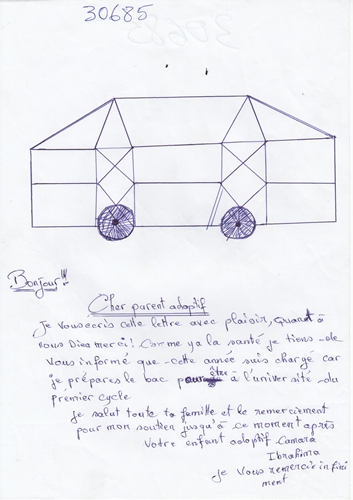 30685
Bonjour!!!
Cher parent adoptif
Je vous ecris cette lettre avec plaisir, quant à
vous Dieu merci! Comme ya la santé je tiens de
vous informé que cette année suis chargé car
je prépares le bac pour être à l'université du
prémier cycle
Je salut toute ta famille et le remerciement
pour mon soutien jusqu'à ce moment après
Votre enfant adoptif Camara
Ibrahima
Je vous remercie infini
ment